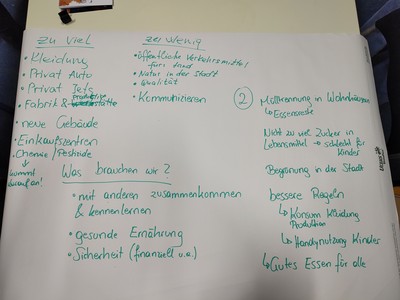 zu viel
• Kleidung
• Privat Auto
• Privat Jets
• Fabrik &
• neue Gebäude
• Einkaufszentren
• Chemie / Pestizide
↳ kommt
darauf an!
zu wenig
• öffentliche Verkehrsmittel
fürs Land
• Natur in der Stadt
• Qualität
• Kommunizieren
Was brauchen wir?
• mit anderen zusammenkommen
& kennenlernen
• gesunde Ernährung
• Sicherheit (finanziell u.a.)
②
Mülltrennung in Wohnhäusern
↳ Essensreste
Nicht zu viel Zucker in
Lebensmittel → schlecht für
Kinder
Begrünung in der Stadt
bessere Regeln
↳ Konsum Kleidung
Produktion
↳ Handynutzung Kinder
↳ Gutes Essen für alle